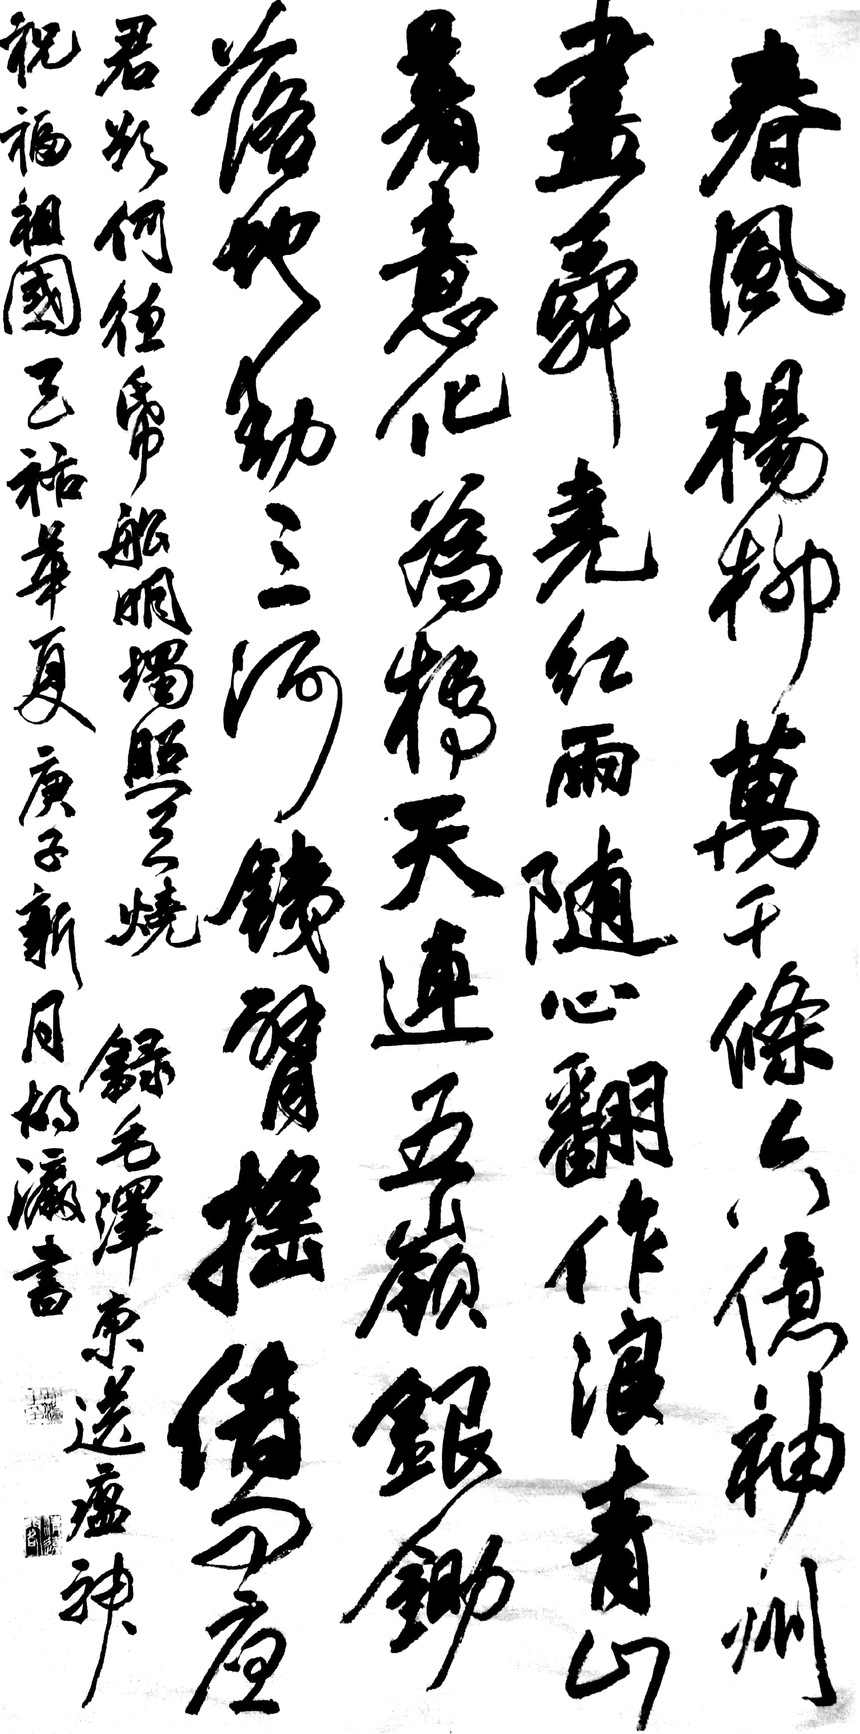 春風楊柳萬千條六億神州
盡舜堯紅雨随心翻作浪青山
著意化為橋天連五嶺銀鋤
落地動三河鐵臂搖借問瘟
君欲何往帋船明燭照天燒 録毛澤東送瘟神
祝福祖國天祐華夏庚子新月胡瀛書